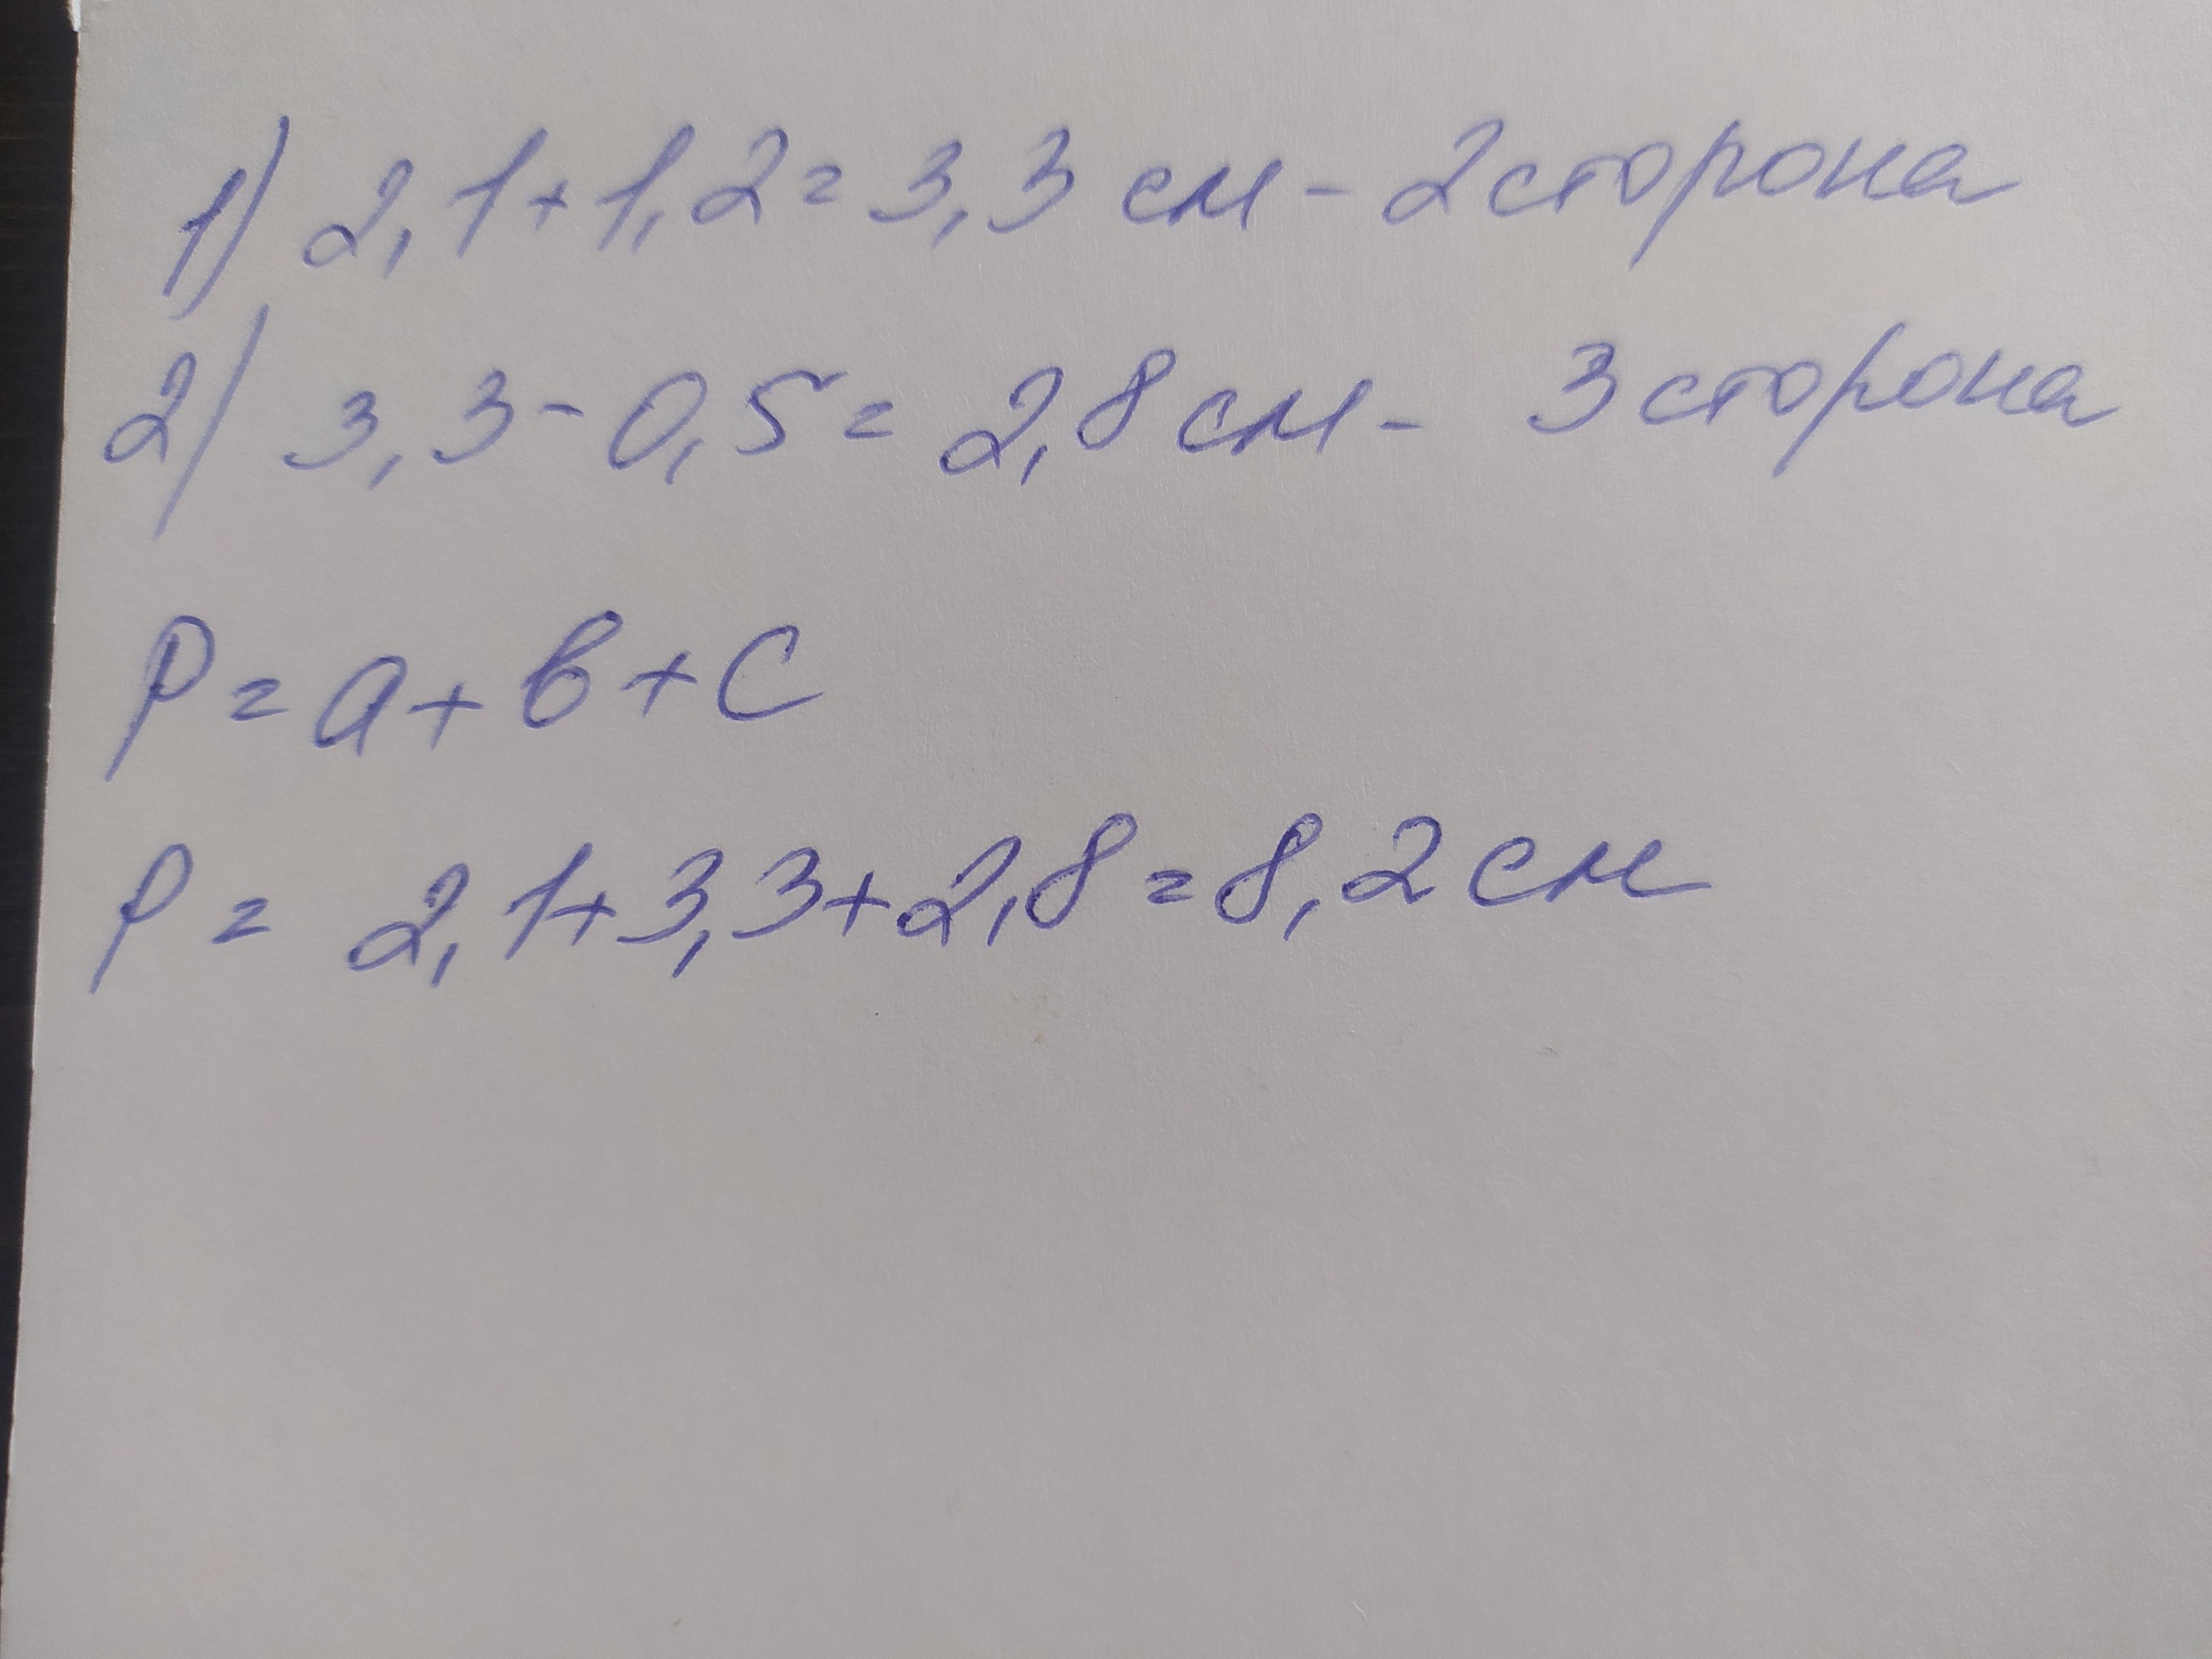 1) 2,1+1,2=3,3 см - 2 сторона
2) 3,3-0,5=2,8 см - 3 сторона
P=a+в+c
P= 2,1+3,3+2,8=8,2 см